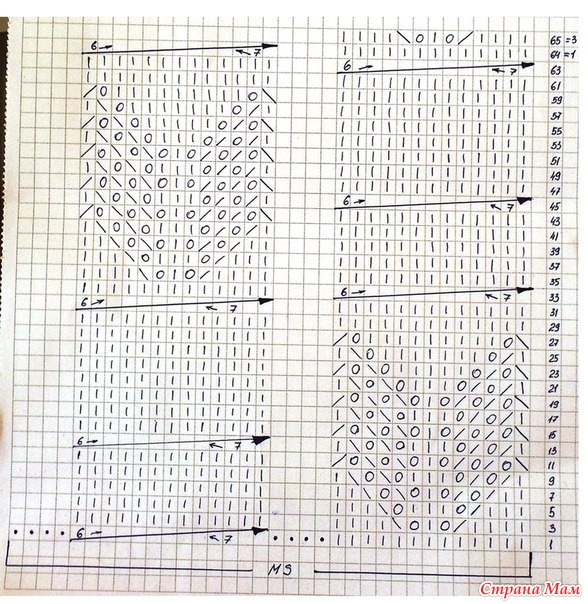 65 =3
6→ ←7
64 =1
6→ ←7
63
61
59
57
55
53
51
49
47
6→ ←7
45
43
41
39
37
35
6→ ←7
33
6→ ←7
31
29
27
25
23
21
19
17
15
6→ ←7
13
11
9
7
5
3
6→ ←7
1
MS
Страна Мам